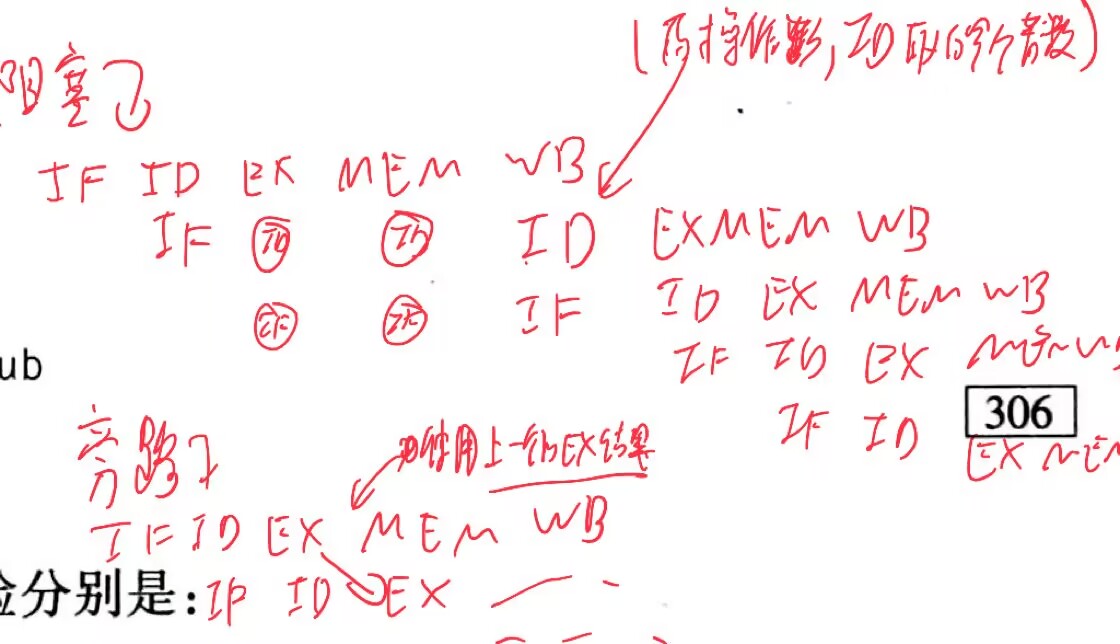 操作数,ID取的
阻塞了
IF ID EX MEM WB
IF ID ID ID EX MEM WB
IF IF IF ID EX MEM WB
ub
IF ID EX MEM WB
306
IF ID EX MEM
旁路了
使用上一个的EX结果
IF ID EX MEM WB
分别是:IF ID EX